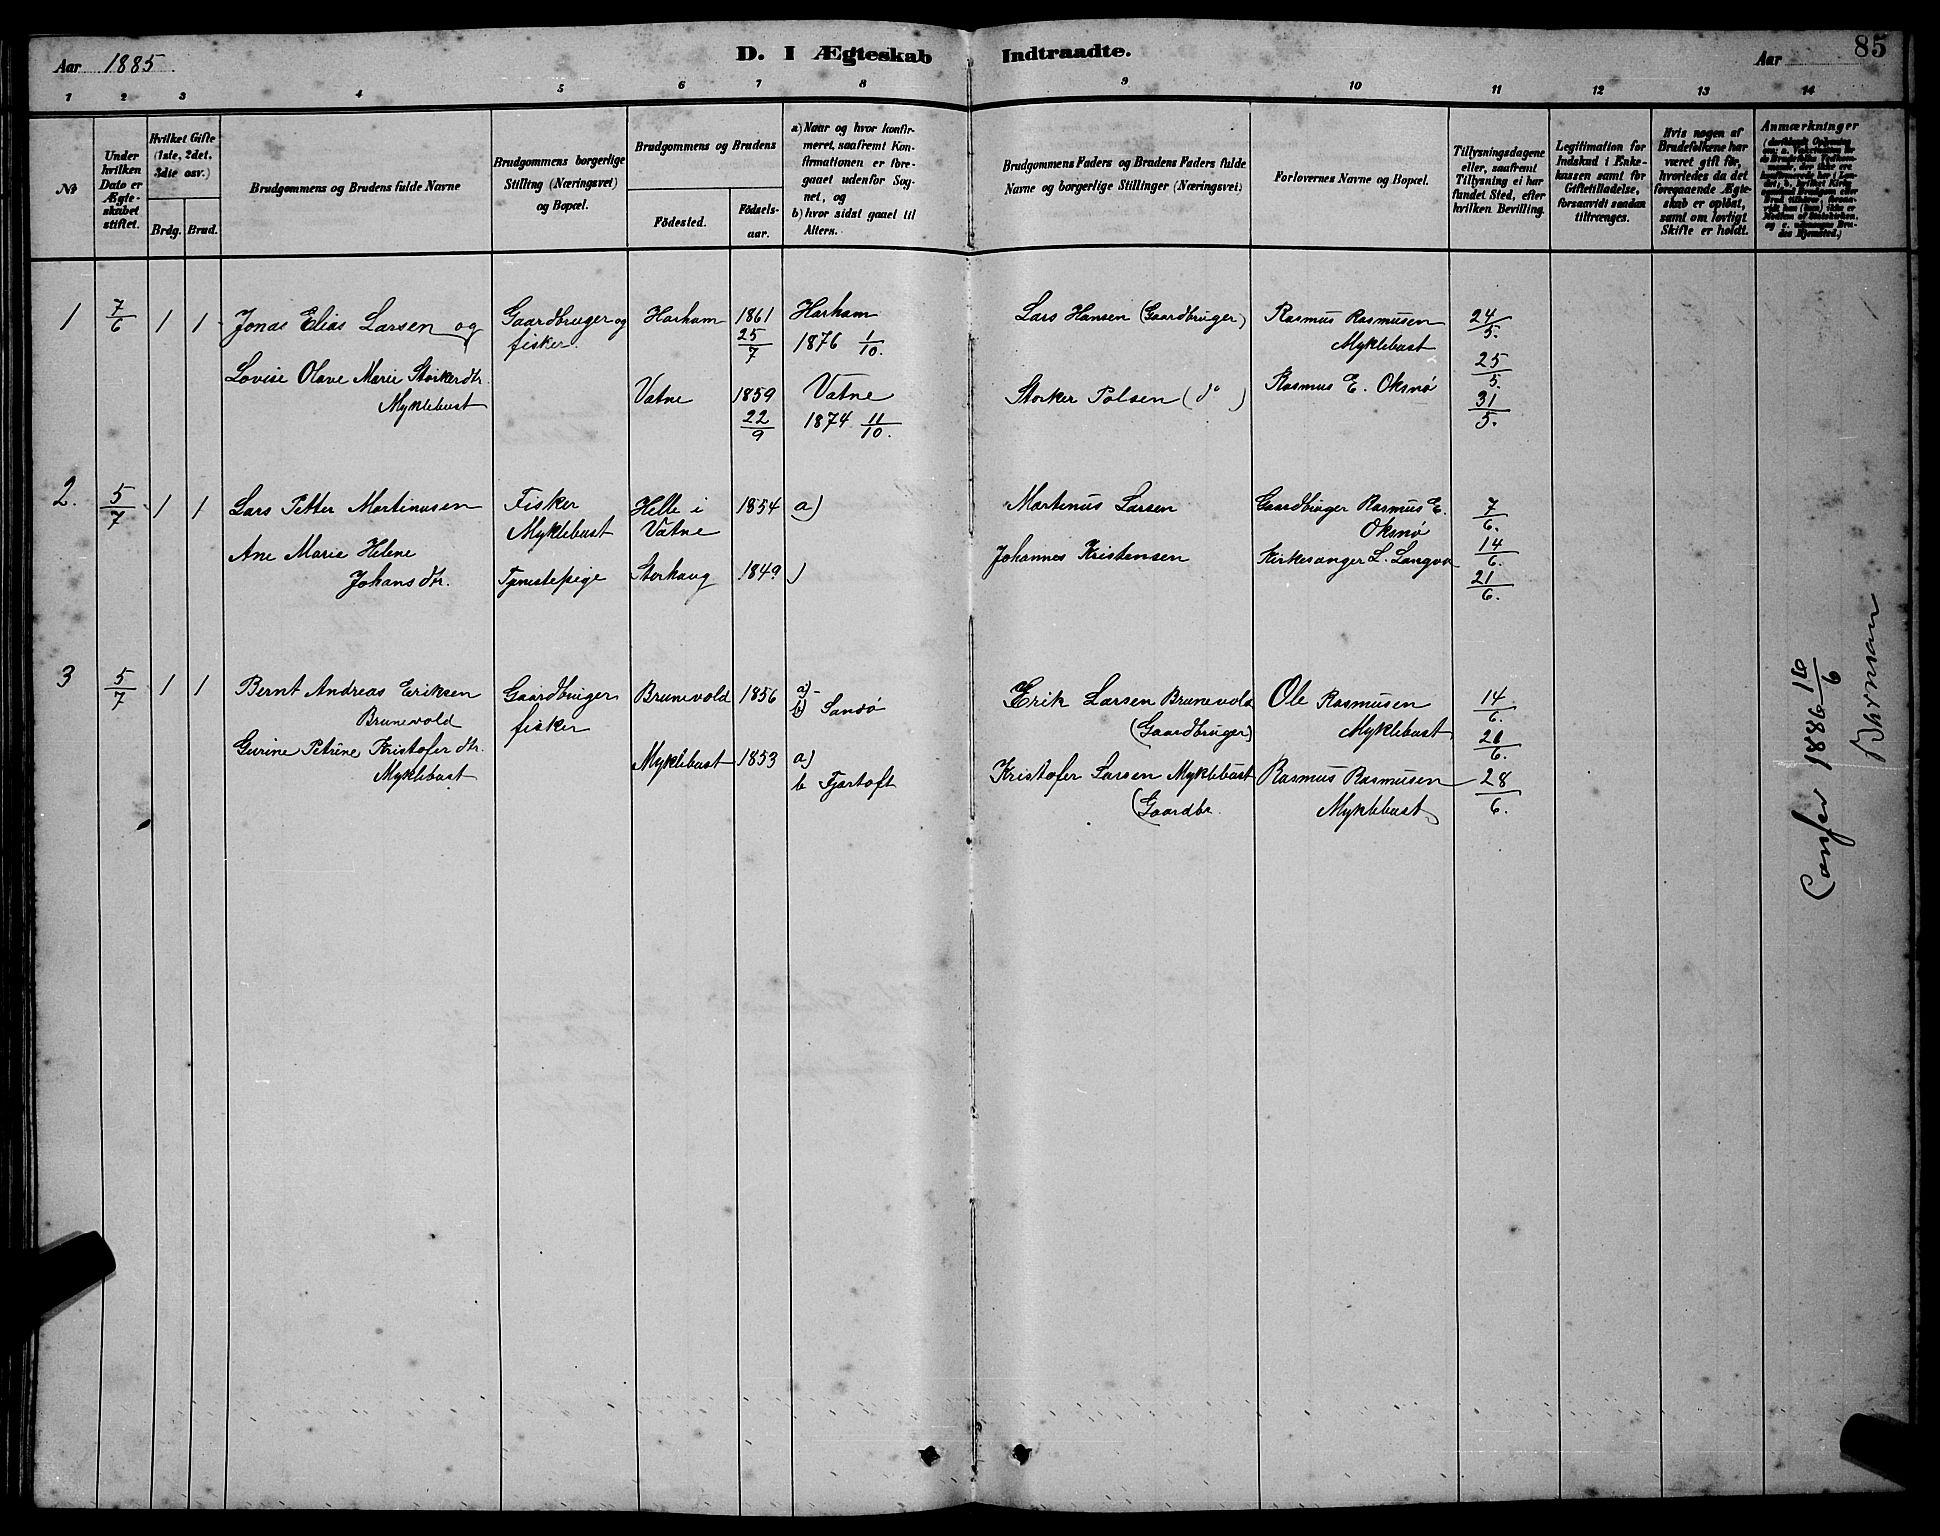 Aar 1885.
D. I Ægteskab Indtraadte.
Aar
85
1 2 3 4 5 6 7 8 9 10 11 12 13 14
No
Under hvilken Dato er Ægteskabet stiftet.
Hvilket Gifte (1ste, 2det, 3die osv.)
Brdg. Brud.
Brudgommens og Brudens fulde Navne
Brudgommens borgerlige Stilling (Næringsvei) og Bopæl.
Brudgommens og Brudens
Födested.
Födselsaar.
a) Naar og hvor konfirmeret, saafremt Konfirmationen er foregaaet udenfor Sognet, og
b) hvor sidst gaaet til Alters.
Brudgommens Faders og Brudens Faders fulde Navne og borgerlige Stillinger (Næringsvei)
Forlovernes Navne og Bopæl.
Tillysningsdagene eller, saafremt Tillysning ei har fundet Sted, efter hvilken Bevilling.
Legitimation for Indskud i Enkekassen samt for Giftetilladelse, forsaavidt saadan tiltrænges.
Hvis nogen af Brudefolkene har været gift før, hvorledes da det foregaaende Ægteskab er opløst, samt om lovligt Skifte er holdt.
Anmærkninger
1 7/6 1 1 Jonas Elias Larsen og Gaardbruger og fisker. Harham 1861 25/7 Harham 1876 1/10. Lars Hansen (Gaardbruger) Rasmus Rasmusen Myklebust 24/5. 25/5.
Lovise Olave Marie Storkerdtr. Myklebust Vatne 1859 22/9 Vatne 1874 11/10. Storker Polsen (do) Rasmus E. Oksnø 31/5.
2. 5/7 1 1 Lars Petter Martinusen Fisker Myklebust Helle i Vatne 1854 a) Martinus Larsen Gaardbruger Rasmus E. Oksnø 7/6. 14/6.
Ane Marie Helene Johansdtr. Tjenestepige Storhaug 1849 ) Johannes Kristensen Kirkesanger L. Langva 21/6.
3 5/7 1 1 Bernt Andreas Eriksen Brunevold Gaardbruger fisker Brunevold 1856 a)- b) Sandø Erik Larsen Brunevold (Gaardbruger) Ole Rasmusen Myklebust 14/6. 21/6.
Gurine Petrine Kristoferdtr. Myklebust Myklebust 1853 a) b Fjørtoft Kristofer Larsen Myklebust (Gaardbr. Rasmus Rasmusen Myklebust 28/6.
Confer 1886 16/6